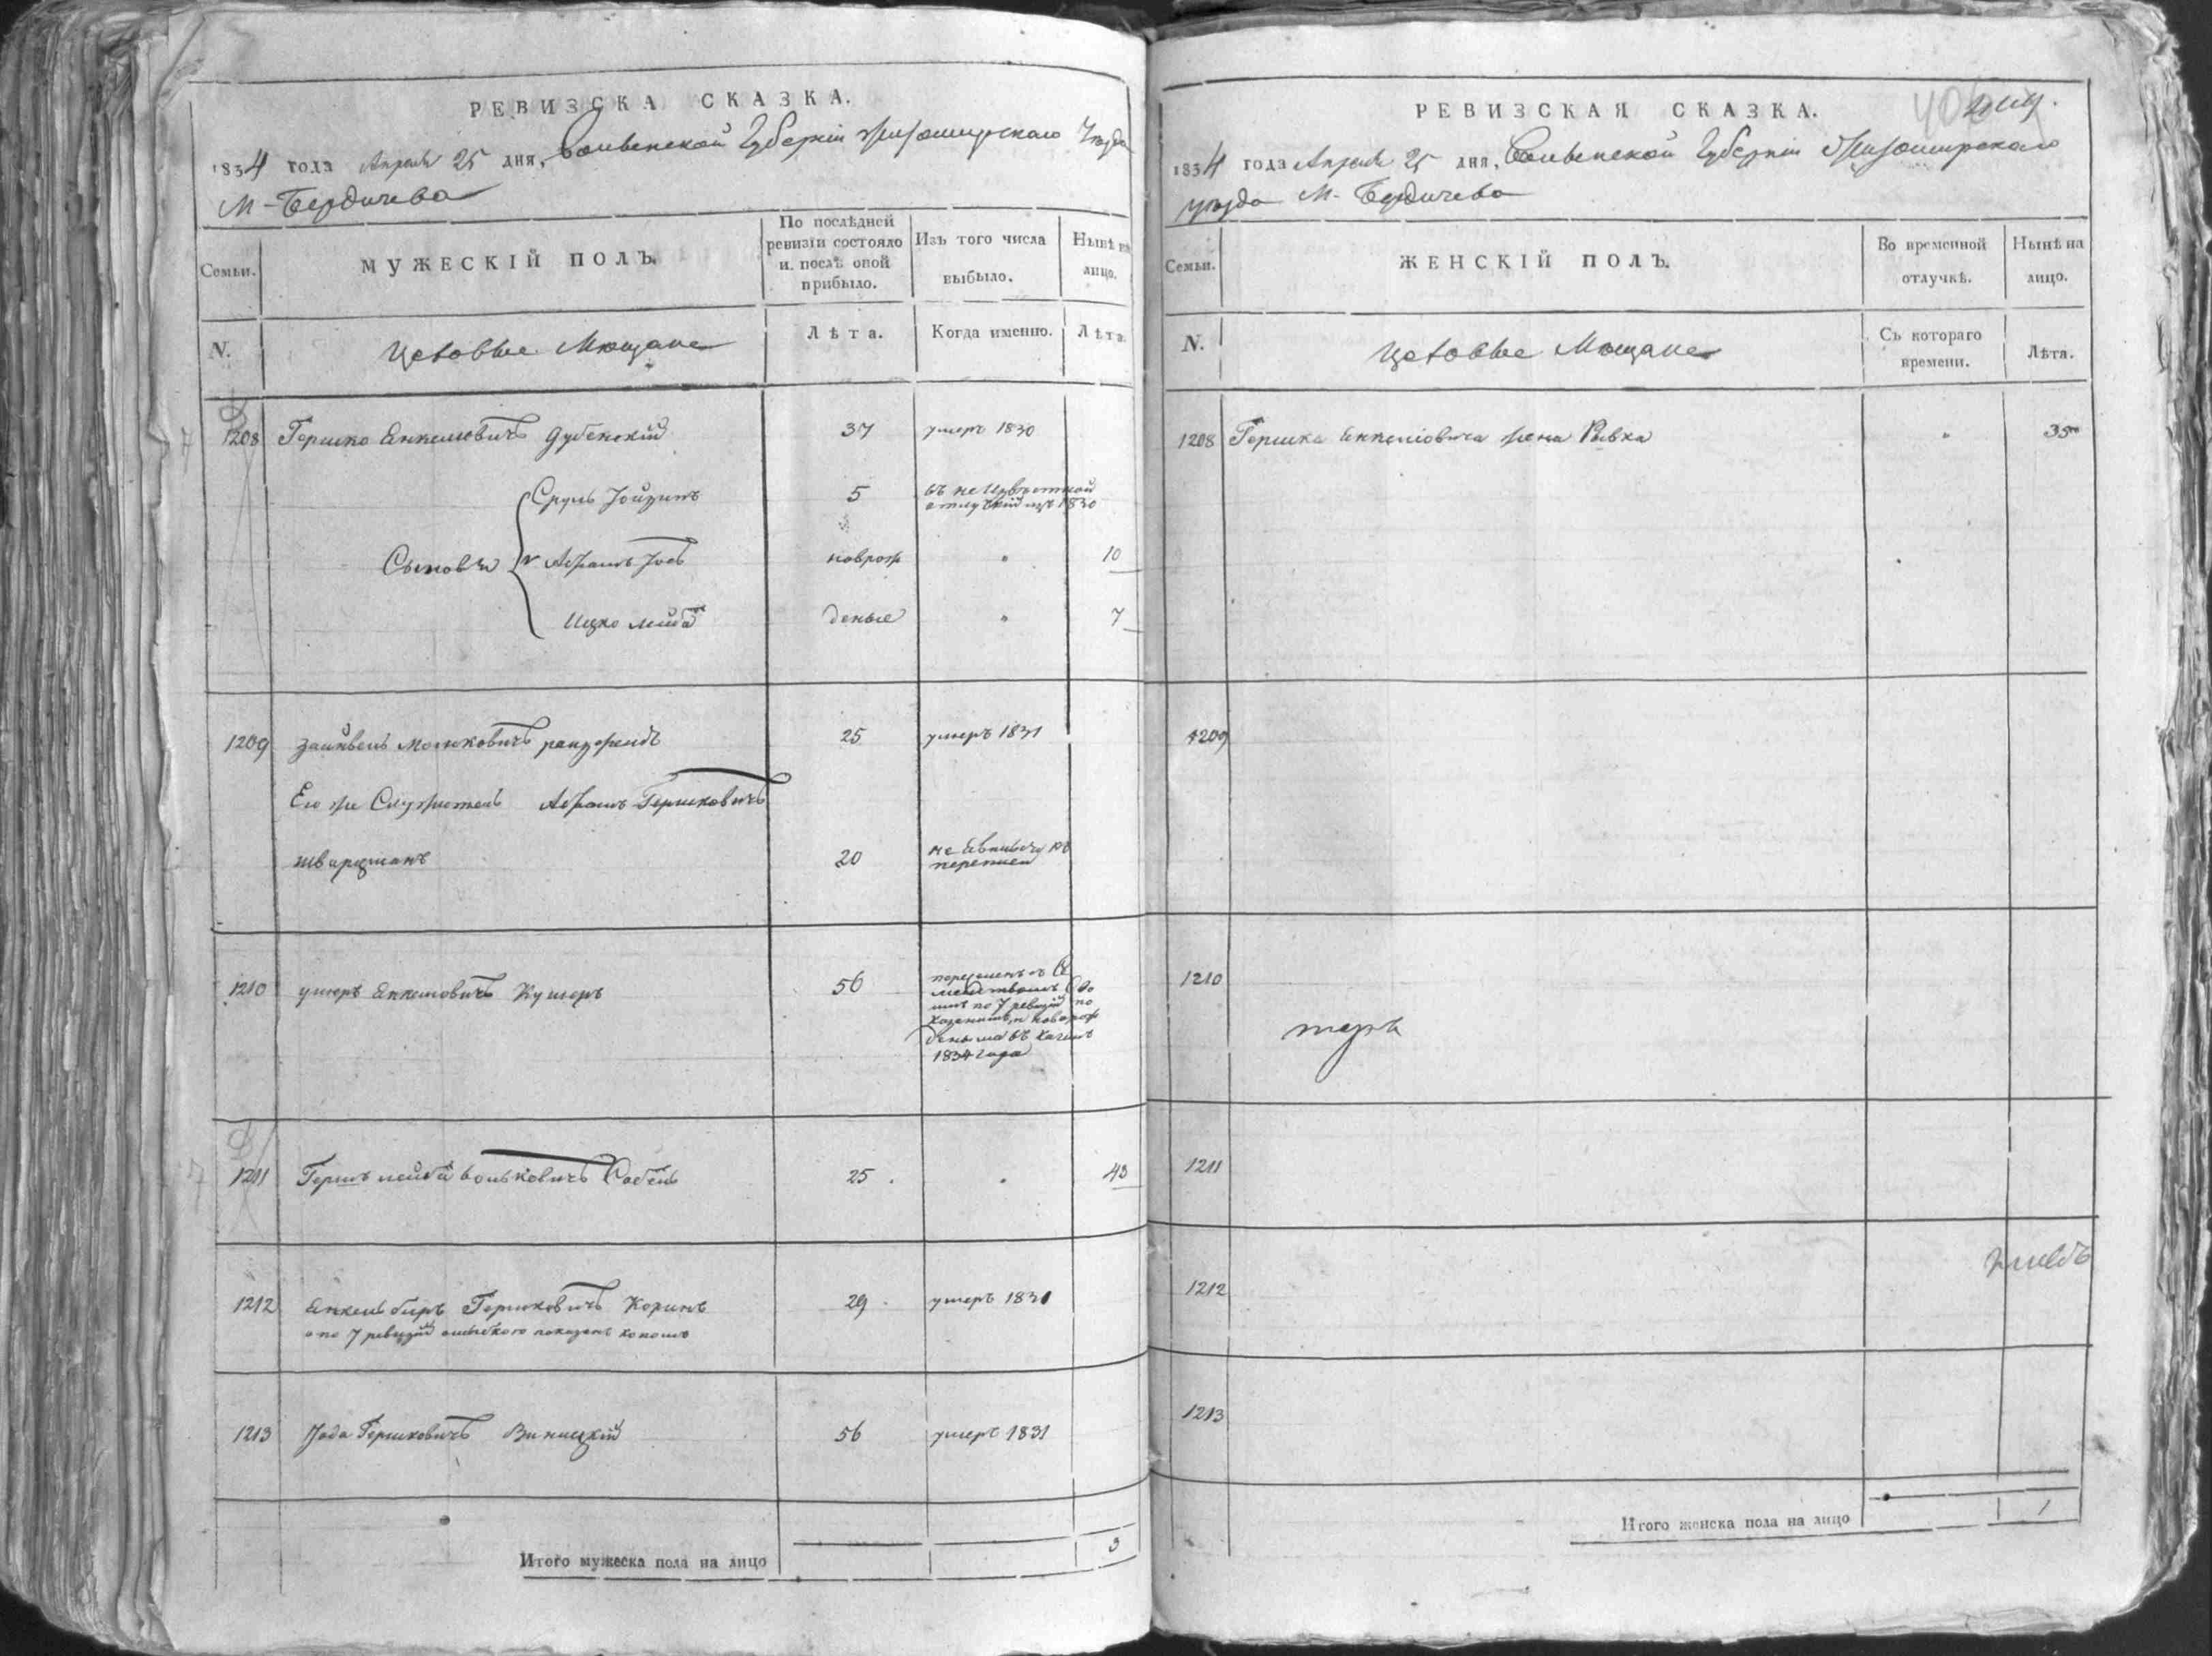 РЕВИЗСКА СКАЗКА.
1834 года Апреля 25 дня, Волынской Губернии Житомирского Уезда
М-Бердичева
Семьи.
МУЖЕСКІЙ ПОЛЪ.
По послѣдней ревизіи состояло и послѣ оной прибыло.
Изъ того числа выбыло.
Нынѣ на лицо.
N.
Цеховые Мещане
Лѣта.
Когда именно.
Лѣта.
1208 Гершко Енкелювичъ Дубенскій 37 умеръ 1830
Сруль 5 въ неизвѣстной
1830
Сыновья Абрамъ новрож " 10
Ицко Лейба деные " 7
1209 Зайнвель Мошковичъ 25 умеръ 1831
Его же Служитель Абрамъ Гершковичъ
Шварцманъ 20 не явившись къ
переписи
1210 Енкелювичъ 56
по 7 ревизіи по
1834 года
1211 Гершъ Лейба Вольковичъ 25 " 43
1212 Енкель Беръ Гершковичъ Коринъ 29 умеръ 1831
а по 7 ревизіи показанъ
1213 Гершковичъ Виницкій 56 умеръ 1831
Итого мужеска пола на лицо 3
РЕВИЗСКАЯ СКАЗКА.
1834 года Апреля 25 дня, Волынской Губернии Житомирского
уезда М- Бердичева
Семьи.
ЖЕНСКІЙ ПОЛЪ.
Во временной отлучкѣ.
Нынѣ на лицо.
N.
Цеховые Мещане
Съ котораго времени.
Лѣта.
1208 Гершка Енкелювича жена Ривка " 35
1209
1210
1211
1212
1213
Итого женска пола на лицо 1